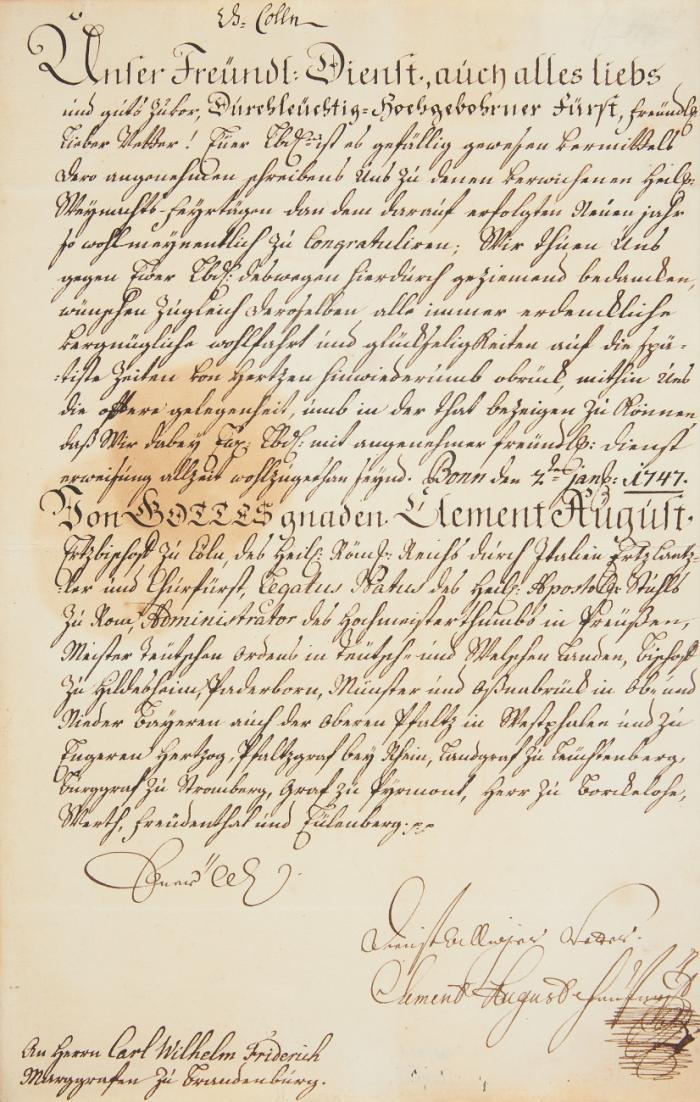 Ch: Cölln
Unser Freündl: Dienst, auch alles liebs
und guts zuvor, Durchleüchtig-Hochgebohrner Fürst, freündlr:
lieber Vetter! Euer Lbdn: ist es gefällig gewesen vermittels
dero angenehmen schreibens Uns zu denen verwichenen Heil:
Weynachts-feyrtägen dan dem darauf erfolgten Neuen jahr
so wohlmeynentlich zu Congratuliren; Wir thuen Uns
gegen Ewer Lbd: deswegen hierdurch geziemend bedancken,
wünschen zugleich deroselben alle immer erdenckliche
vergnügliche wohlfahrt und glückseligkeiten auf die spä-
-tiste zeiten von Hertzen hinwiederumb, mithin Uns
die offtere gelegenheit, umb in der that bezeigen zu können,
daß Wir dabey Ew: Lbd: mit angenehmer freündl: dienst
erweisung allzeit wohlzugethan seynd. Bonn den 2ten janr: 1747.
Von GOTTES gnaden Clement August
Ertzbischoff zu Cöln, des Heil: Röm: Reichs durch Italien Ertzcantz-
-ler und Churfürst, Legatus Natus des Heil: Apostol: Stuhls
zu Rom, Administrator des Hochmeisterthumbs in Preüßen,
Meister Teutschen Ordens in Teutsch- und Welschen Landen, Bischoff
zu Hildesheim, Paderborn, Münster und Oßnabrück in Ob- und
Nieder Bayeren auch der Oberen Pfaltz in Westphalen und zu
Engeren Hertzog, Pfaltzgraf bey Rhein, Landgraf zu Leüchtenberg,
Burggraf zu Stromberg, Graf zu Pyrmont, Herr zu Borckelohe,
Werth, Freüdenthal und Eülenberg.
Dienstwilliger Vetter
Clement August Churfürst
An Herrn Carl Wilhelm Friderich
Marggrafen zu Brandenburg.